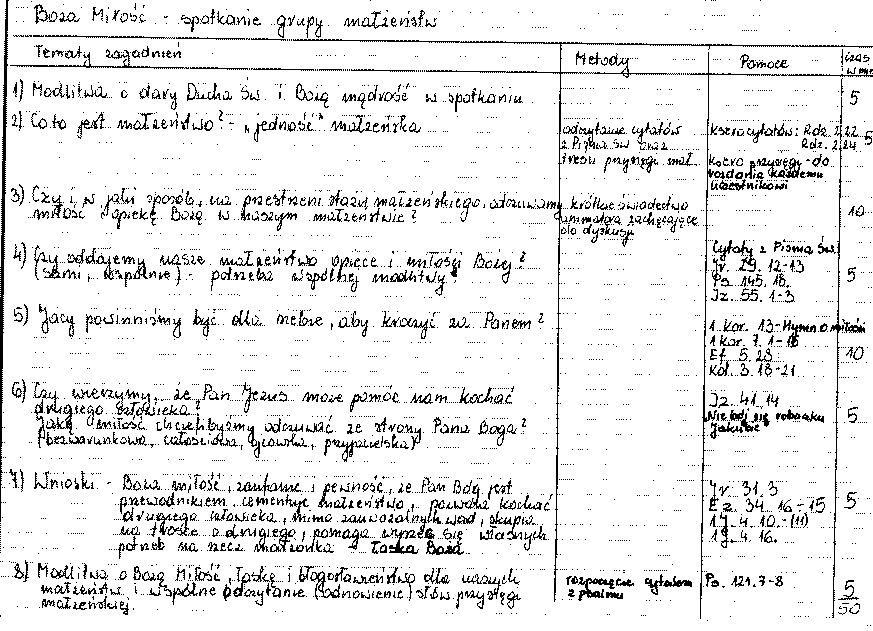 Boża Miłość - spotkanie grupy małżeństw
Tematy zagadnień
Metody
Pomoce
czas
1) Modlitwa o dary Ducha Św. i Bożą mądrość w spotkaniu
5
2) Co to jest małżeństwo? - "jedność" małżeńska
odczytanie cytatów
z Pisma Św. oraz
treści przysięgi małż.
ksero cytatów: Rdz. 2,22
Rdz. 2,24
ksero przysięgi - do
rozdania każdemu
uczestnikowi
5
3) Czy i w jaki sposób, na przestrzeni stażu małżeńskiego, odczuwamy
miłość i opiekę Bożą w naszym małżeństwie?
krótkie świadectwo
animatora zachęcające
do dyskusji
10
4) Czy oddajemy nasze małżeństwo opiece i miłości Bożej?
(sami, wspólnie) - potrzeba wspólnej modlitwy
Cytaty z Pisma Św.
Jr. 29. 12-13
Ps. 145. 18.
Iz. 55. 1-3
5
5) Jacy powinniśmy być dla siebie, aby kroczyć za Panem?
1 Kor. 13 - Hymn o miłości
1 Kor. 7. 1-16
Ef 5. 28
Kol. 3. 18-21
10
6) Czy wierzymy, że Pan Jezus może pomóc nam kochać
drugiego człowieka?
Jaką miłość chcielibyśmy odczuwać ze strony Pana Boga?
(bezwarunkowa, całościowa, zjawiska, przyjacielska)
Iz. 41. 14
Nie bój się robaczku
Jakubie
5
7) Wnioski - Boża miłość, zaufanie i pewność, że Pan Bóg jest
przewodnikiem cementuje małżeństwo, pozwala kochać
drugiego człowieka, mimo zauważalnych wad, skupia
na trosce o drugiego, pomaga wyrzec się własnych
potrzeb na rzecz małżonka - Łaska Boża
Jr. 31. 3
Ez. 34. 16-15
1 J. 4. 10.-(11)
1 J. 4. 16.
5
8) Modlitwa o Bożą Miłość, łaskę i błogosławieństwo dla naszych
małżeństw i wspólne odczytanie (odnowienie) słów przysięgi
małżeńskiej.
rozpoczęcie cytatem
z psalmu
Ps. 121. 7-8
5
50